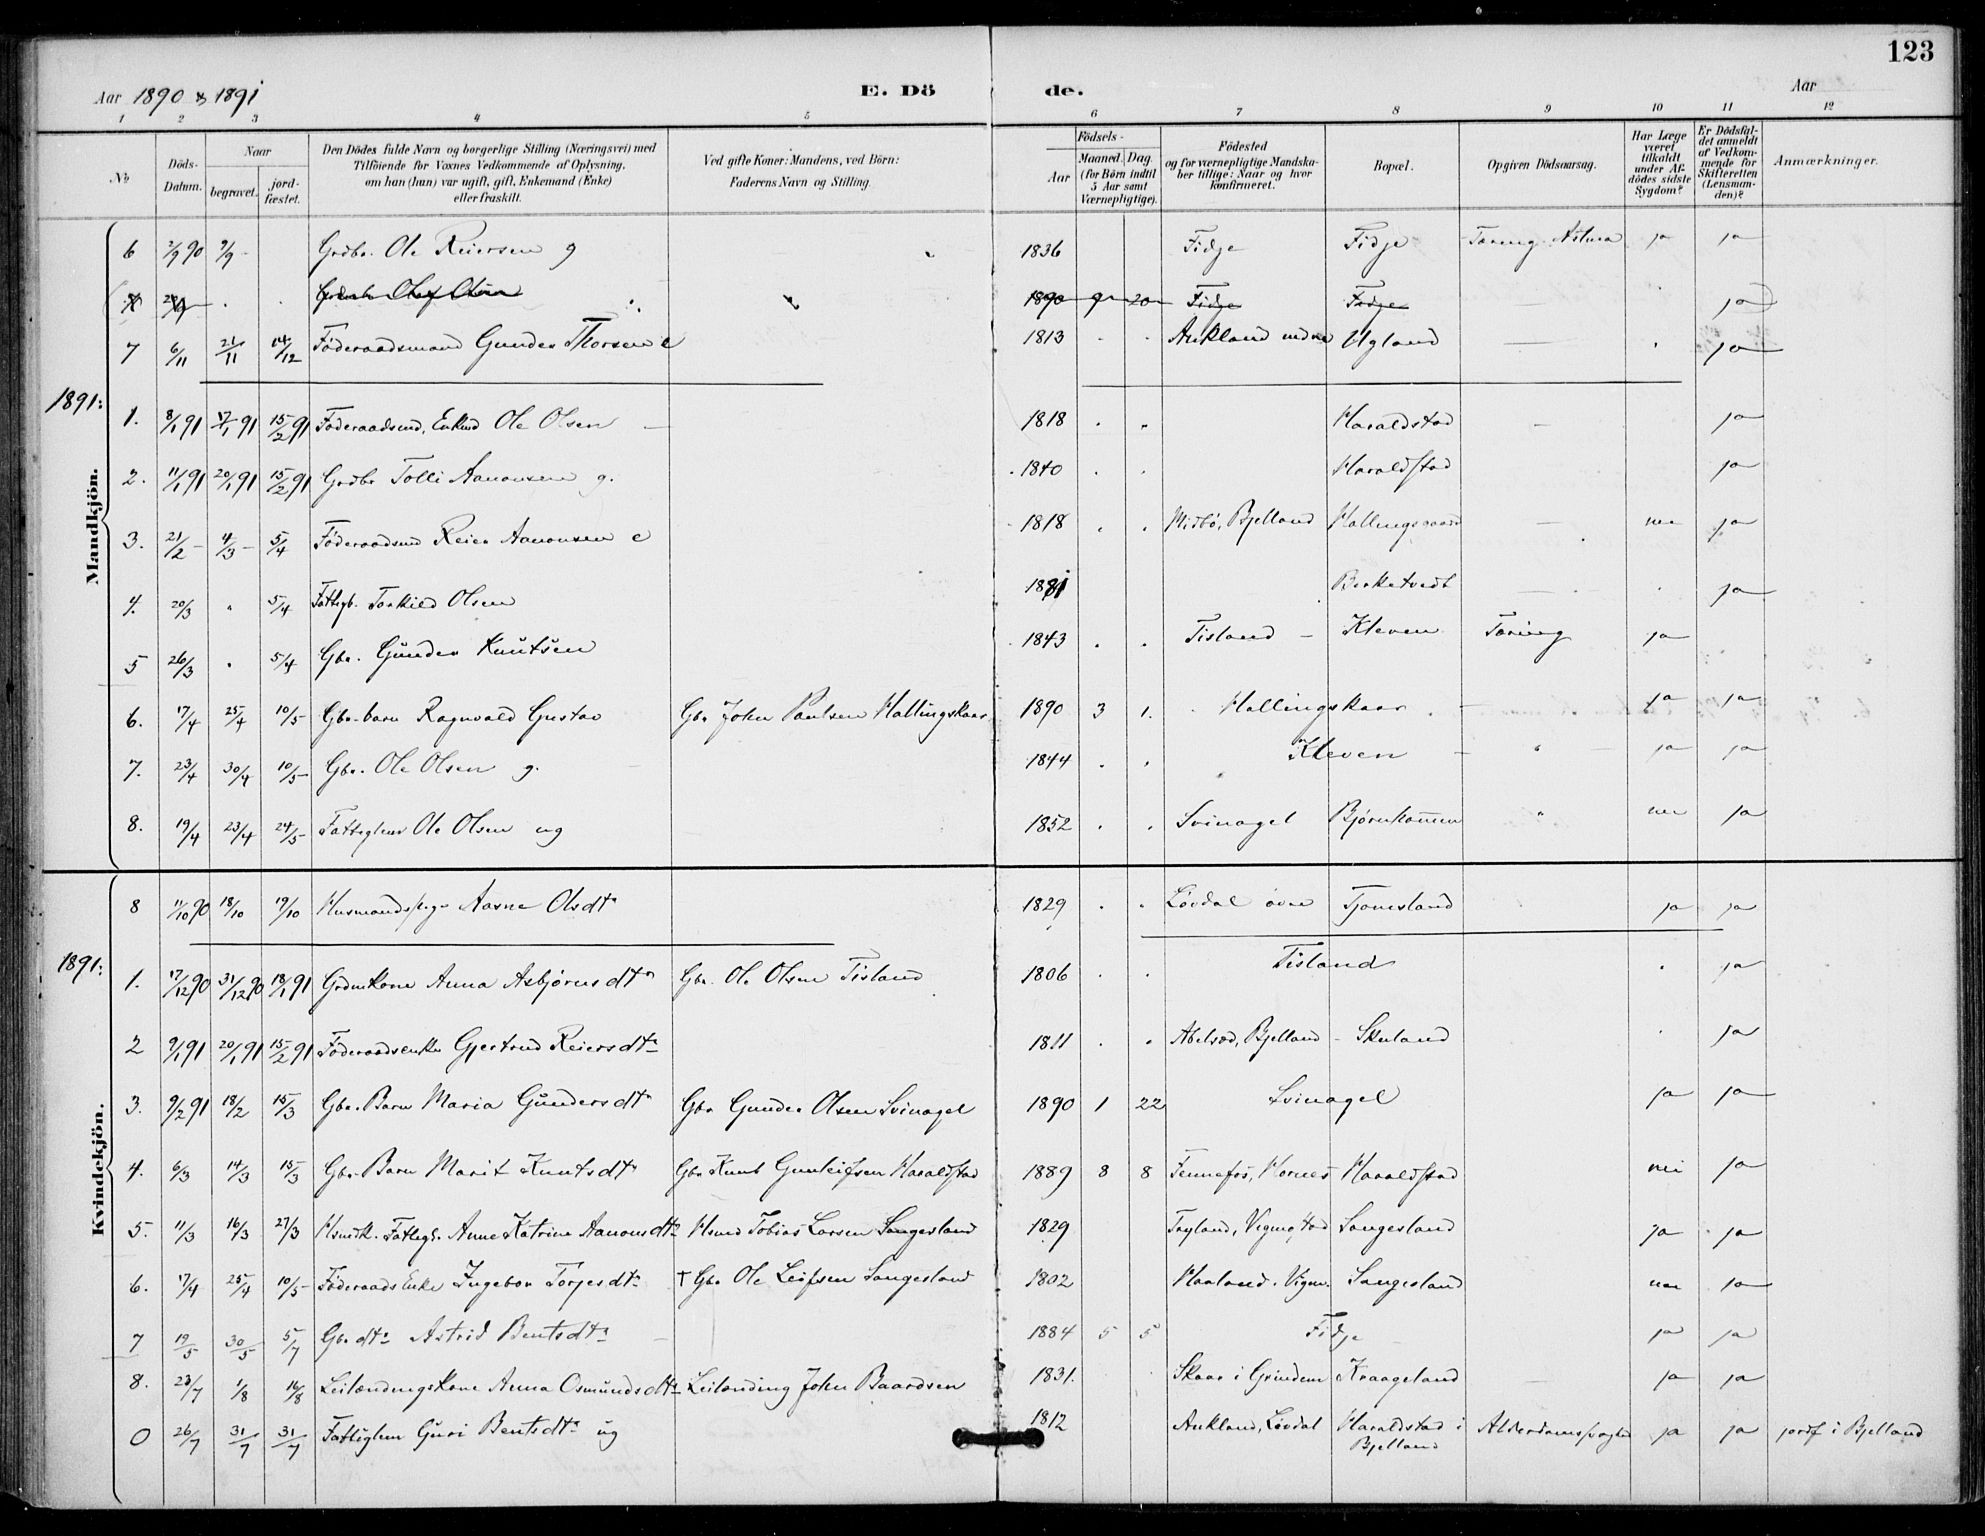 123
Aar 1890 & 1891
E. Dö
de.
Aar
1 2 3 4 5 6 7 8 9 10 11 12
No
Döds-Datum.
Naar
begravet.
jord-fæstet.
Den Dödes fulde Navn og borgerlige Stilling (Næringsvei) med
Tilföiende for Voxnes Vedkommende af Oplysning,
om han (hun) var ugift, gift, Enkemand (Enke)
eller fraskilt.
Ved gifte Koner: Mandens, ved Börn:
Faderens Navn og Stilling.
Födsels-
Aar
Maaned. Dag.
(for Börn indtil
5 Aar samt
Værnepligtige).
Födested
og for værnepligtige Mandska-
ber tillige: Naar og hvor
konfirmeret.
Bopæl.
Opgiven Dödsaarsag.
Har Læge
været
tilkaldt
under Af-
dödes sidste
Sygdom?
Er Dödsfal-
det anmeldt
af Vedkom-
mende for
Skifteretten
(Lensman-
den)?
Anmærkninger.
Mandkjön.
6 2/9 90 9/9 Grdbr. Ole Reiersen g 1836 Fidje Fidje Tæring Astma ja ja
Olaf Olsen 1890 9 20 Fidje Fidje ja
7 6/11 21/11 14/12 Föderaadsmand Gunder Thorsen e 1813 Aukland indre Ugland ja
1891:
1. 8/1 91 17/1 91 15/2 91 Föderaadsmd, Enkmd Ole Olsen 1818 Haraldstad ja
2. 11/1 91 20/1 91 15/2 91 Grdbr Tolli Aanonsen g. 1840 Haraldstad ja
3. 21/2 4/3 5/4 Föderaadsmd Reier Aanonsen e 1818 Midbö, Bjelland Hallingsgaard nei ja
4. 20/3 " 5/4 Fattigb. Torkild Olsen Birketvedt ja
5 26/3 5/4 Gbr. Gunder Knutsen 1843 Tisland Kleven Tæring ja
6. 17/4 25/4 10/5 Gbr-barn Ragnvald Gustav Gbr John Paulsen Hallingskaar 1890 3 1. Hallingskaar ja ja
7. 23/4 30/4 10/5 Gbr. Ole Olsen g. 1844 Kleven " ja ja
8. 19/4 23/4 24/5 Fattiglem Ole Olsen ug 1852 Svinagel " nei ja
Kvindekjön.
8 11/10 90 18/10 19/10 Aasne Olsdtr 1829 Lövdal övre Tjomsland ja ja
1891:
1. 17/12 90 31/12 90 18/1 91 Grdmkone Anna Asbjörnsdtr Gbr. Ole Olsen Tisland 1806 Tisland ja
2 9/1 91 20/1 91 15/2 91 Föderaadsenke Gjertrud Reiersdtr 1811 Bjelland Skuland ja
3. 9/2 91 18/2 15/3 Gbr. Barn Maria Gundersdtr Gbr Gunder Olsen Svinagel 1890 1 22 Svinagel ja ja
4. 6/3 14/3 15/3 Gbr. Barn Marit Knutsdtr Gbr Knut Gunleifsen Haraldstad 1889 8 8 Fennefos, Hornes Haraldstad nei ja
5. 11/3 16/3 27/3 Hsmdk. Fattigl. Anne Katrine Aanonsdtr Hsmd Tobias Larsen Sangesland 1829 Sangesland ja ja
6. 17/4 25/4 10/5 Föderaads Enke Ingebor Torjesdtr † Gbr Ole Leifsen Sangesland 1802 Haaland. Vigm. Sangesland nei ja
7 19/5 30/5 5/7 Gbr dtr Astrid Bentsdtr 1884 5 5 Fidje ja ja
8. 23/7 1/8 16/8 Leilændingskone Anna Osmundsdtr Leilænding John Baardsen 1831. Skaar i Grindem Kraageland ja ja
0 26/7 31/7 31/7 Fattiglem Guri Bentsdtr ug 1812 Aukland, Lövdal Haraldstad i Bjelland Alderdomssvaghed ja ja jordf i Bjelland